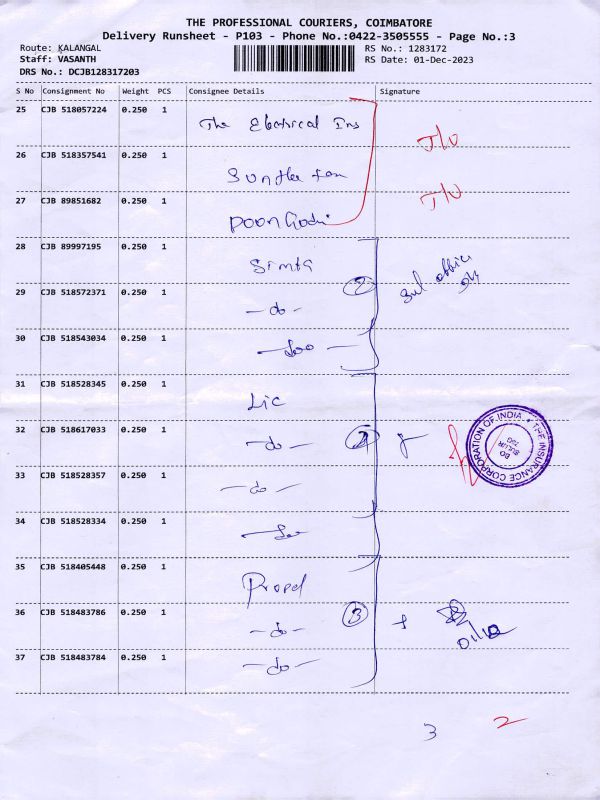 THE PROFESSIONAL COURIERS, COIMBATORE
Delivery Runsheet - P103 - Phone No.:0422-3505555 - Page No.:3
Route: KALANGAL
RS No.: 1283172
Staff: VASANTH
RS Date: 01-Dec-2023
DRS No.: DCJB128317203
S No Consignment No Weight PCS Consignee Details Signature
25 CJB 518057224 0.250 1
The Electrical Ins
26 CJB 518357541 0.250 1
27 CJB 89851682 0.250 1
28 CJB 89997195 0.250 1
Simta
29 CJB 518572371 0.250 1
- do -
2
30 CJB 518543034 0.250 1
31 CJB 518528345 0.250 1
Lic
32 CJB 518617033 0.250 1
- do -
THE INSURANCE CORPORATION OF INDIA
BO
SULUR
33 CJB 518528357 0.250 1
- do -
34 CJB 518528334 0.250 1
35 CJB 518405448 0.250 1
Propel
36 CJB 518483786 0.250 1
- do -
3
37 CJB 518483784 0.250 1
- do -
3 2